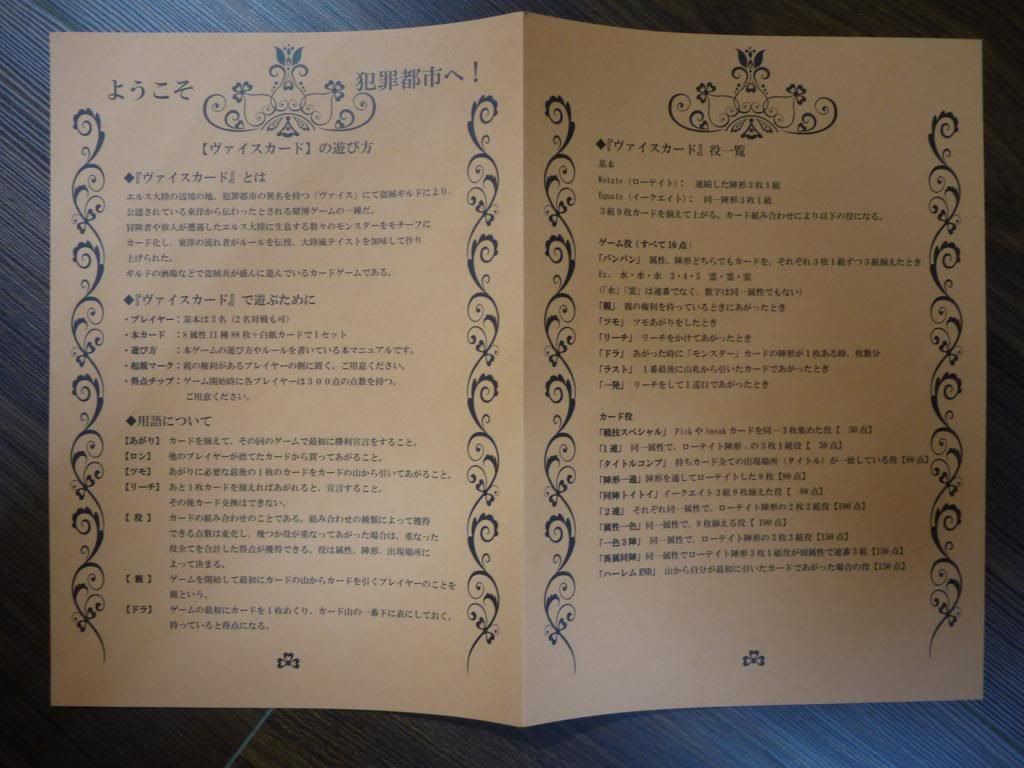 ようこそ 犯罪都市へ！
【ヴァイスカード】の遊び方
◆『ヴァイスカード』とは
エルス大陸の辺境の地、犯罪都市の異名を持つ「ヴァイス」にて盗賊ギルドにより、
公認されている東洋から伝わったとされる賭博ゲームの一種だ。
冒険者や旅人が遭遇したエルス大陸に生息する数々のモンスターをモチーフに
カード化し、東洋の流れ者がルールを伝授、大陸風テイストを加味して作り
上げられた。
ギルドの酒場などで盗賊共が盛んに遊んでいるカードゲームである。
◆『ヴァイスカード』で遊ぶために
・プレイヤー：基本は3名（2名対戦も可）
・本カード ：8属性11種88枚＋白紙カードで1セット
・遊び方 ：本ゲームの遊び方やルールを書いている本マニュアルです。
・起親マーク：親の権利があるプレイヤーの側に置く、ご用意ください。
・得点チップ：ゲーム開始時に各プレイヤーは３００点の点数を持つ。
ご用意ください。
◆用語について
【あがり】 カードを揃えて、その回のゲームで最初に勝利宣言をすること。
【ロン】 他のプレイヤーが捨てたカードから貰ってあがること。
【ツモ】 あがりに必要な最後の1枚のカードをカードの山から引いてあがること。
【リーチ】 あと1枚カードを揃えればあがれると、宣言すること。
その後カード交換はできない。
【 役 】 カードの組み合わせのことである。組み合わせの種類によって獲得
できる点数は変化し、幾つか役が重なってあがった場合は、重なった
役全てを合計した得点が獲得できる。役は属性、陣形、出現場所に
よって決まる。
【 親 】 ゲームを開始して最初にカードの山からカードを引くプレイヤーのことを
親という。
【ドラ】 ゲームの最初にカードを1枚めくり、カード山の一番下に表にしておく。
持っていると得点になる。
◆『ヴァイスカード』役一覧
基本
Rotate（ローテイト）： 連続した陣形3枚1組
Equate（イークエイト）： 同一陣形3枚1組
3組9枚カードを揃えて上がる。カード組み合わせにより以下の役になる。
ゲーム役（すべて10点）
「バンバン」 属性、陣形どちらでもカードを、それぞれ3枚1組ずつ3組揃えたとき
Ex. 水・水・水 3・4・5 霊・霊・霊
（「水」「霊」は連番でなく、数字は同一属性でもない）
「親」 親の権利を持っているときにあがったとき
「ツモ」 ツモあがりをしたとき
「リーチ」 リーチをかけてあがったとき
「ドラ」 あがった時に「モンスター」カードの陣形が1枚ある時、枚数分
「ラスト」 1番最後に山札から引いたカードであがったとき
「一発」 リーチをして1巡目であがったとき
カード役
「戦技スペシャル」 PickやSneakカードを同一3枚集めた役【 50点】
「1連」 同一属性で、ローテイト陣形.の3枚1組役【 50点】
「タイトルコンプ」 持ちカード全ての出現場所（タイトル）が一致している役【80点】
「陣形一通」 陣形を通してローテイトした9枚【80点】
「同陣トイトイ」 イークエイト3組9枚揃えた役【 80点】
「2連」 それぞれ同一属性で、ローテイト陣形の2枚2組役【100点】
「属性一色」 同一属性で、9枚揃える役【 100点】
「一色3陣」 同一属性で、ローテイト陣形の3枚3組役【150点】
「異属同陣」 同一属性でローテイト陣形3枚1組役が別属性で連番3組【150点】
「ハーレムEND」 山から自分が最初に引いたカードであがった場合の役【150点】